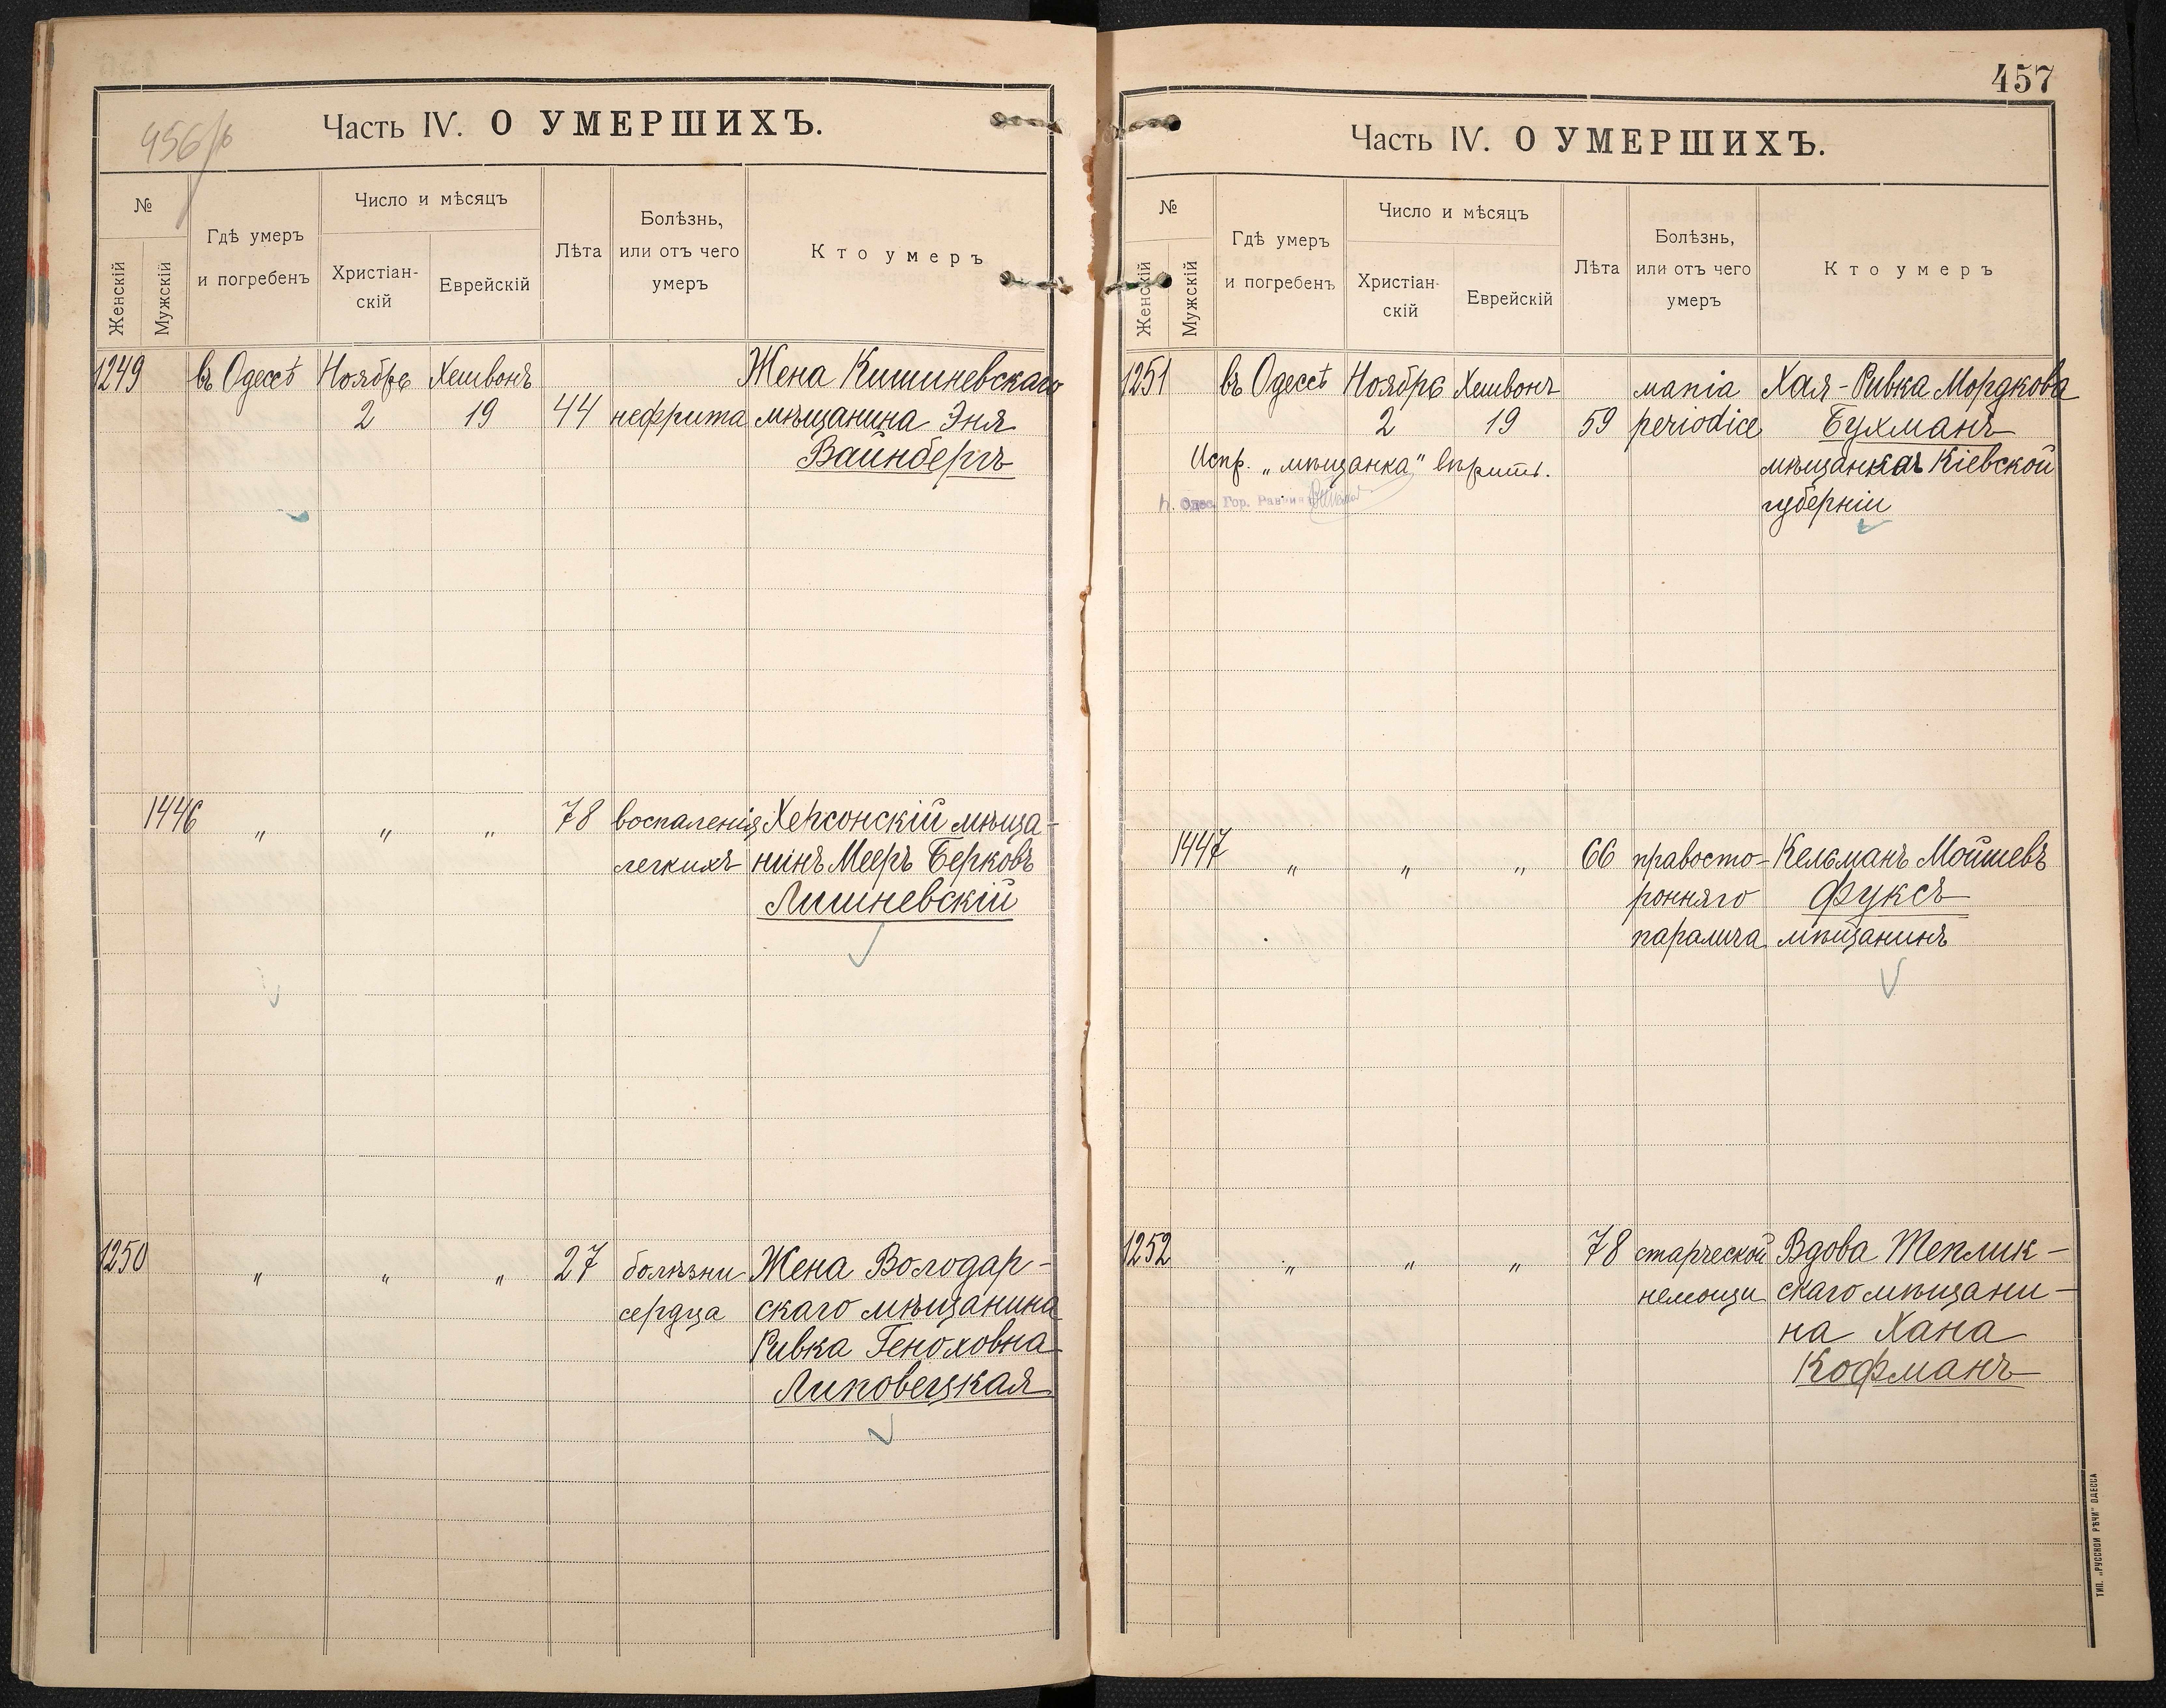 456/об
Часть IV. О УМЕРШИХЪ.
№
Женскій
Мужскій
Гдѣ умеръ
и погребенъ
Число и мѣсяцъ
Христіан-
скій
Еврейскій
Лѣта
Болѣзнь,
или отъ чего
умеръ
Кто умеръ
1249 въ Одессѣ Ноябрь Хешвонъ Жена Кишиневскаго
2 19 44 нефрита мѣщанина Эня
Вайнбергъ
1446 „ „ „ 78 воспаленія Херсонскій мѣща-
легкихъ нинъ Мееръ Берковъ
Лишневскій
1250 „ „ „ 27 болѣзни Жена Володар-
сердца скаго мѣщанина
Ривка Геноховна
Липовецкая
457
Часть IV. О УМЕРШИХЪ.
№
Женскій
Мужскій
Гдѣ умеръ
и погребенъ
Число и мѣсяцъ
Христіан-
скій
Еврейскій
Лѣта
Болѣзнь,
или отъ чего
умеръ
Кто умеръ
1251 въ Одессѣ Ноябрь Хешвонъ мапіа Хая-Ривка Мордкова
2 19 59 periodice Бухманъ
Испр. „мѣщанка" вѣрить. мѣщанка Кіевской
Одес. Гор. Раввинъ губерніи
1447 „ „ „ 66 правосто- Кельманъ Мойшевъ
ронняго Фуксъ
паралича мѣщанинъ
1252 „ „ „ 78 старческой Вдова Теплик-
немощи скаго мѣщани-
на Хана
Кофманъ
ТИП. „РУССКОЙ РѢЧИ" ОДЕССА